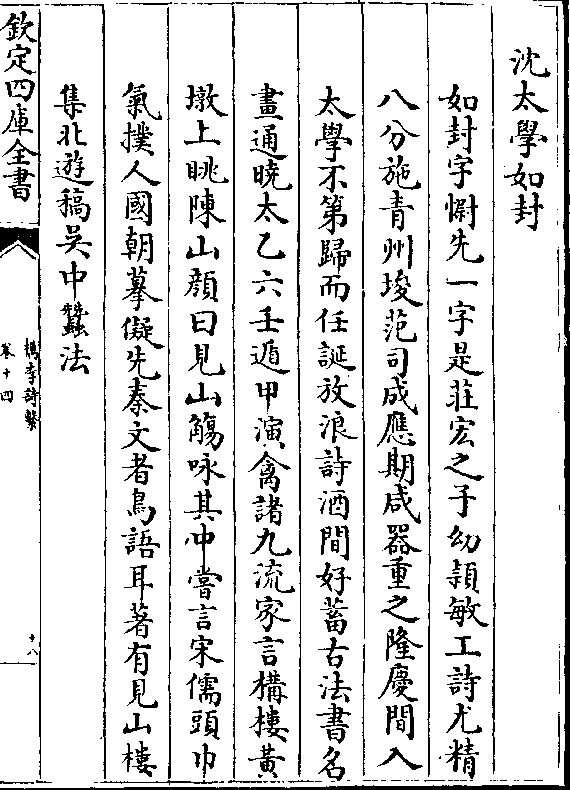 沈太學如封
如封字嶎先一字是莊宏之子幼頴敏工詩尤精
八分施青州埈范司成應期咸器重之隆慶間入
太學不第歸而任誕放浪詩酒間好蓄古法書名
畫通曉太乙六壬遁甲演禽諸九流家言構樓黃
墩上眺陳山顔曰見山觴咏其中嘗言宋儒頭巾
氣撲人國朝摹儗先秦文者鳥語耳著有見山樓
集北遊稿吳中蠶法
欽定四庫全書
檇李詩繫
卷十四
十八